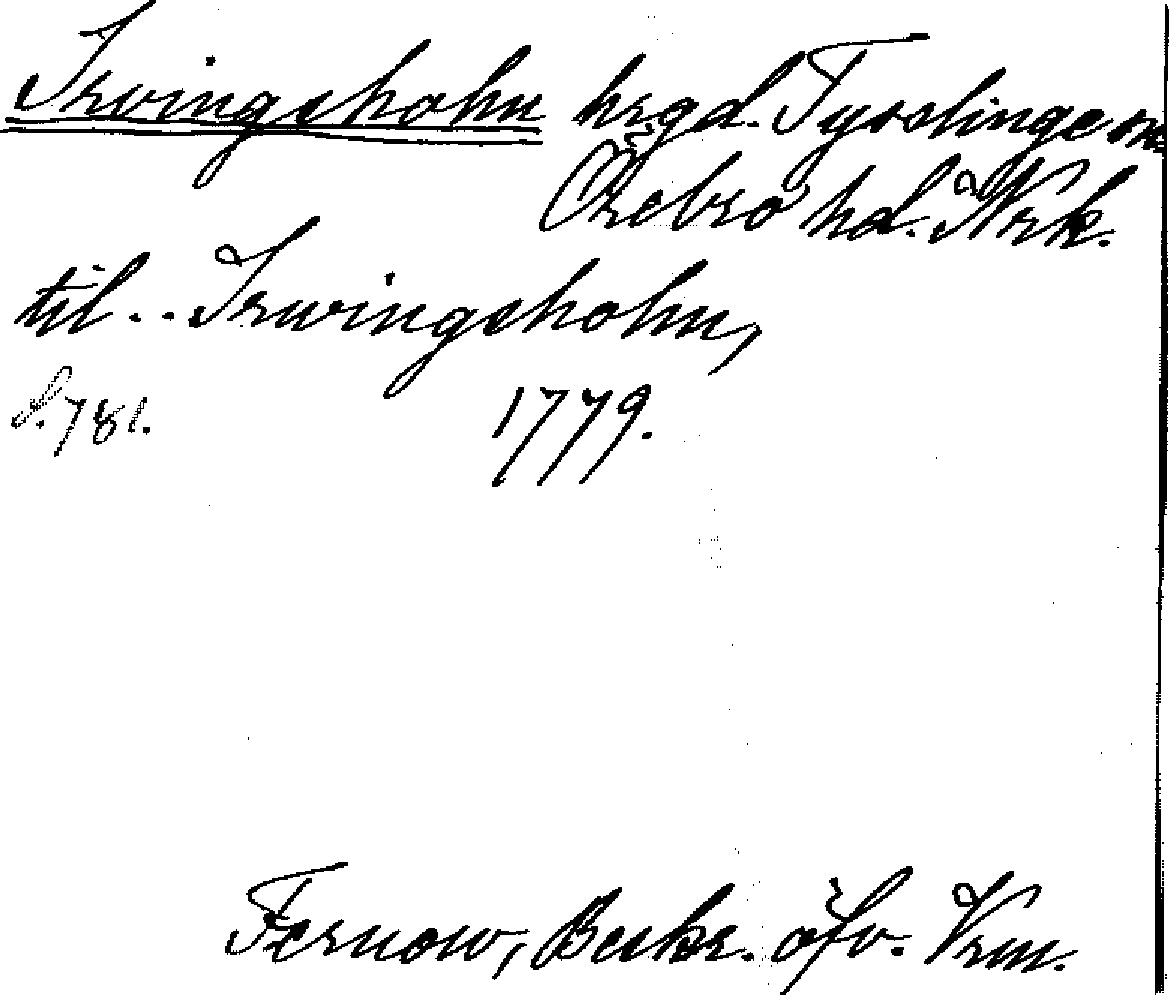 Irvingshohn hrgd. Tysslinge sn
Örebro hd. Nrk.
til .. Irwingshohn,
S. 781. 1779.
Fernow, Beskr. öfv. Vrm.